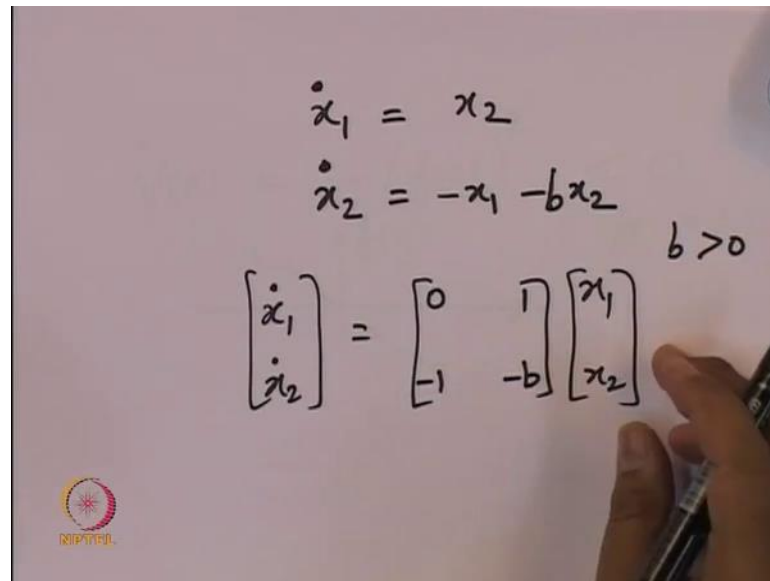 ẋ₁ = x₂
ẋ₂ = -x₁ - bx₂
b > 0
[ẋ₁ ẋ₂] = [0 1 -1 -b] [x₁ x₂]
NPTEL